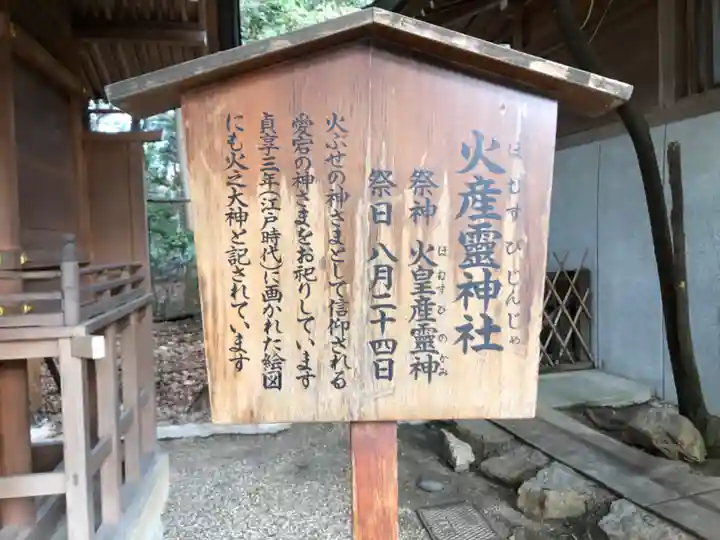 火産靈神社
ほむすびじんじゃ
祭神 火皇産靈神
ほむすびのかみ
祭日 八月二十四日
火ぶせの神さまとして信仰される
愛宕の神さまをお祀りしています
貞享三年(江戸時代)に画かれた絵図
にも火之大神と記されています